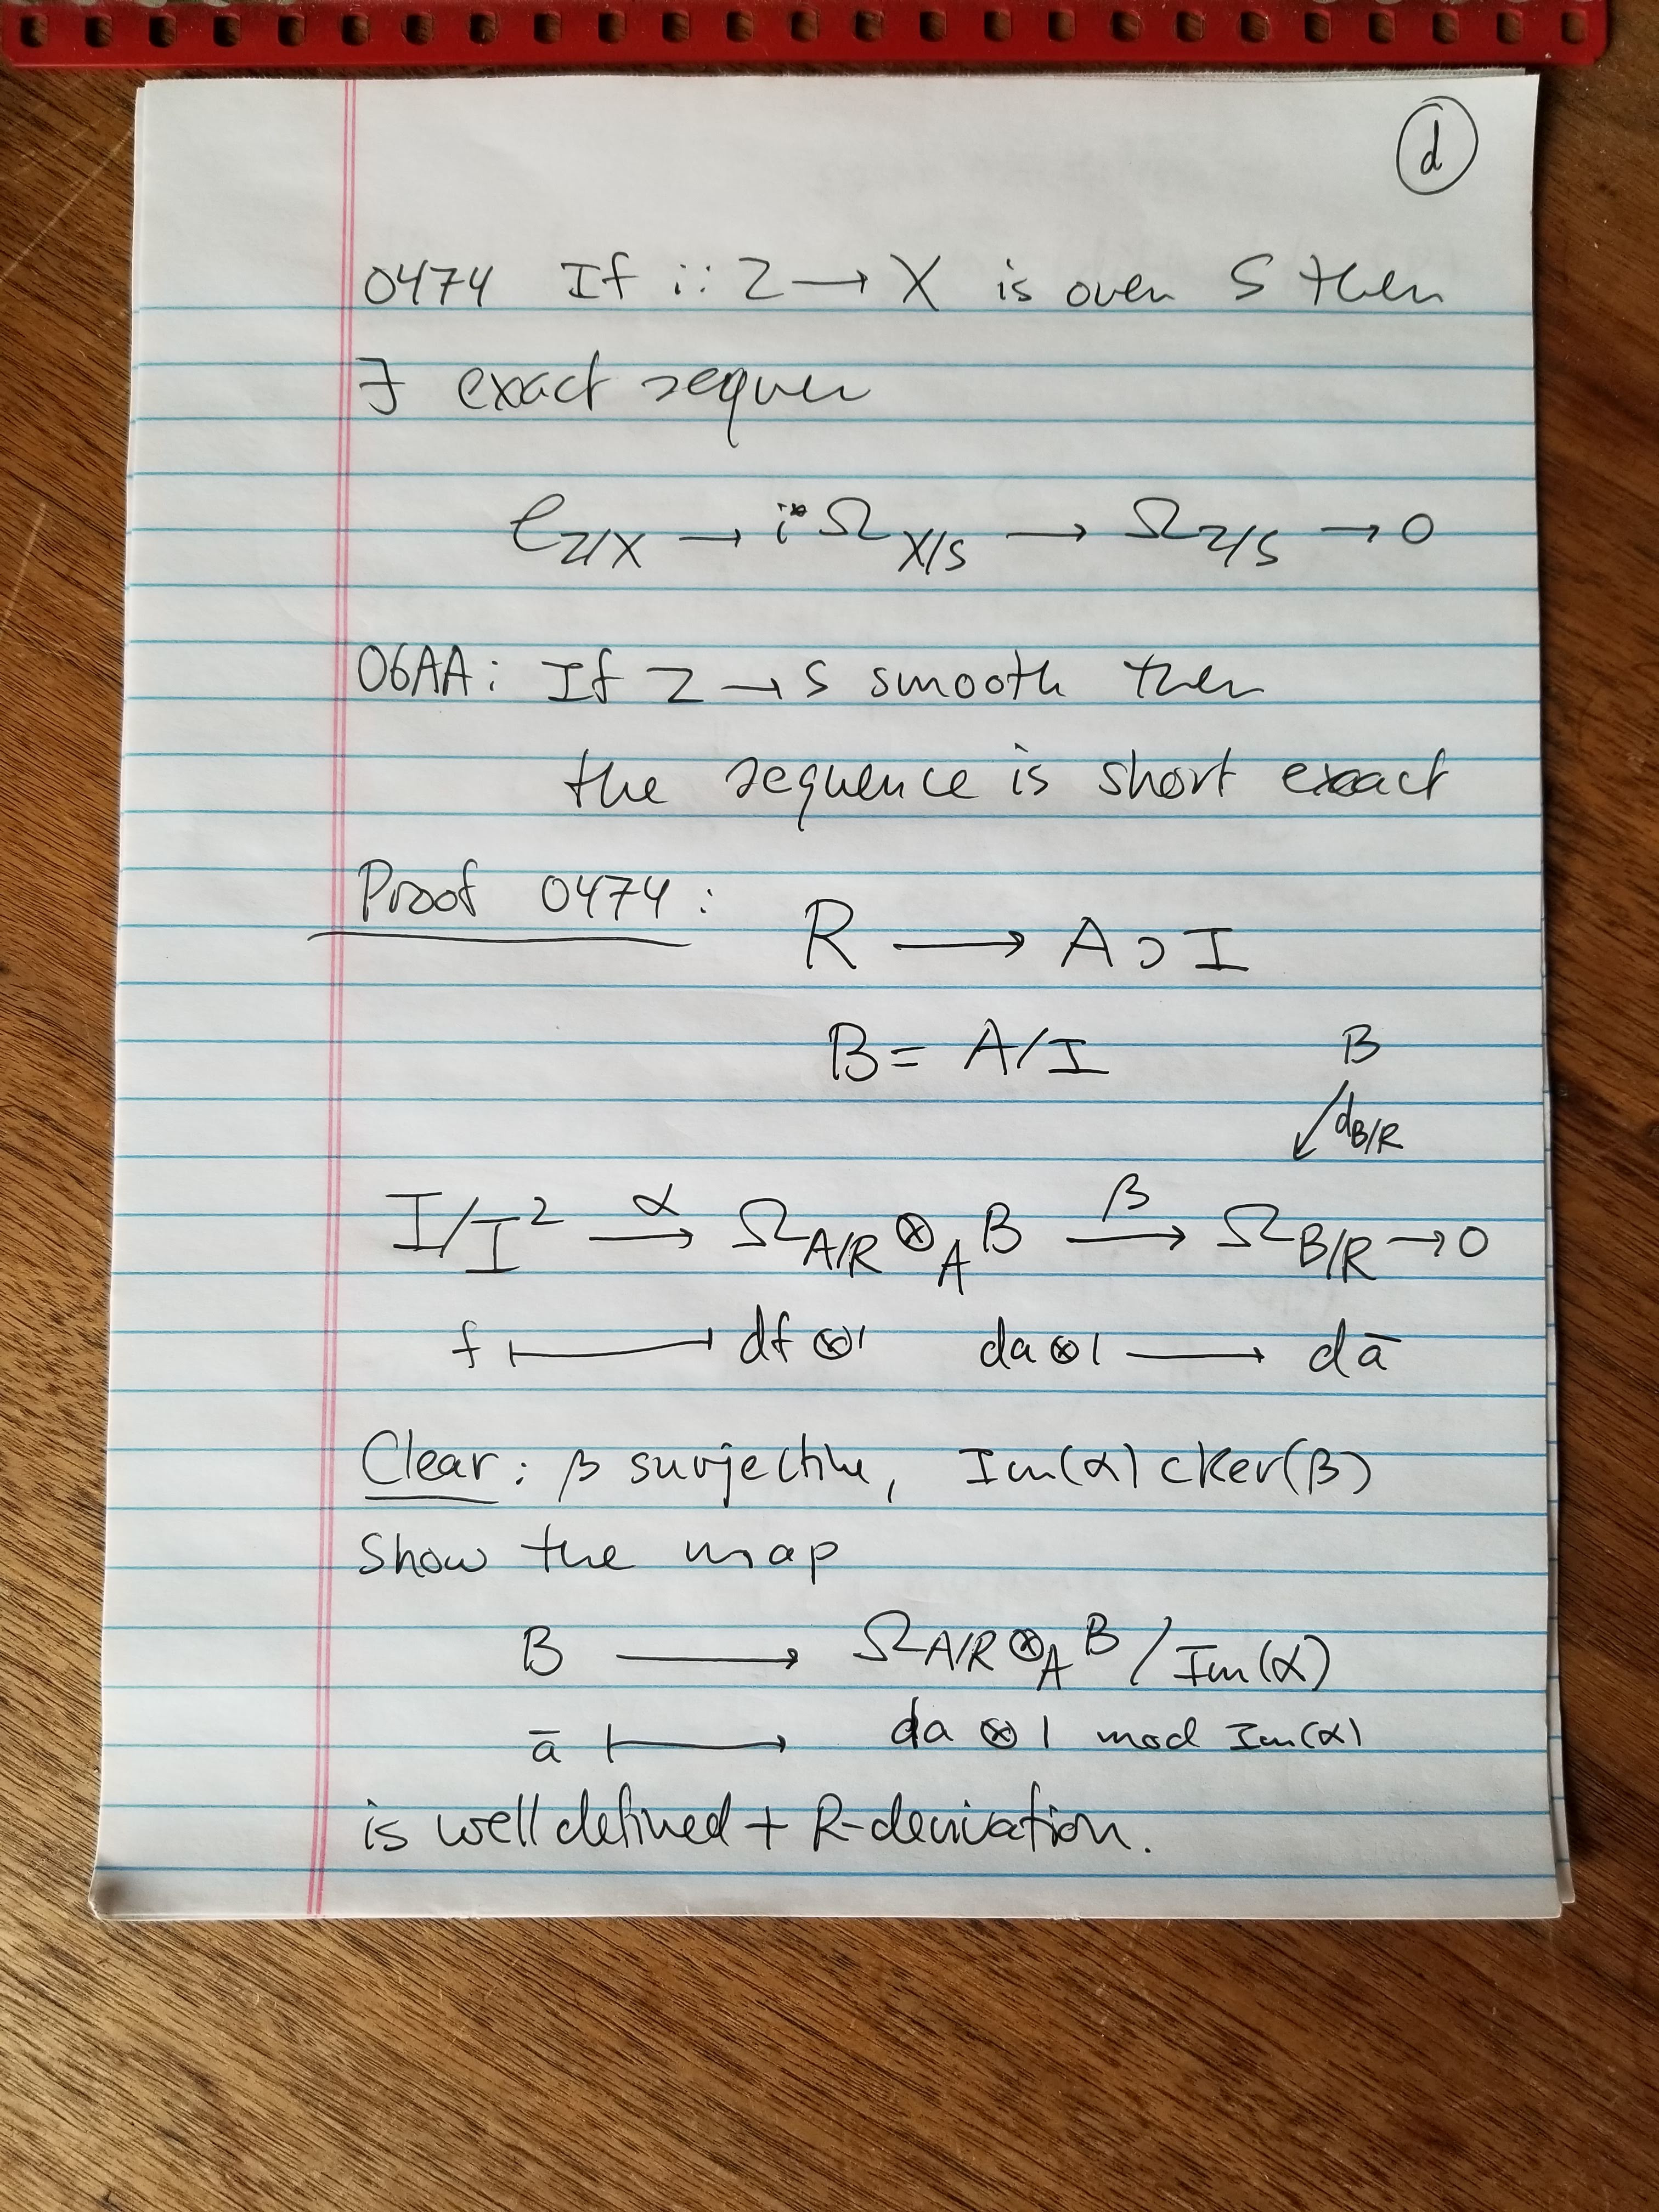 d
0474 If i: Z → X is over S then
∃ exact sequen
𝒞_{Z/X} → i*Ω_{X/S} → Ω_{Z/S} → 0
06AA: If Z → S smooth then
the sequence is short exact
Proof 0474: R → A ⊃ I
B = A/I B
↙ d_{B/R}
I/I² —α→ Ω_{A/R} ⊗_A B —β→ Ω_{B/R} → 0
f ⟼ df ⊗ 1 da ⊗ 1 → dā
Clear: β surjective, Im(α) ⊂ ker(β)
Show the map
B → Ω_{A/R} ⊗_A B / Im(α)
ā ⟼ da ⊗ 1 mod Im(α)
is well defined + R-derivation.